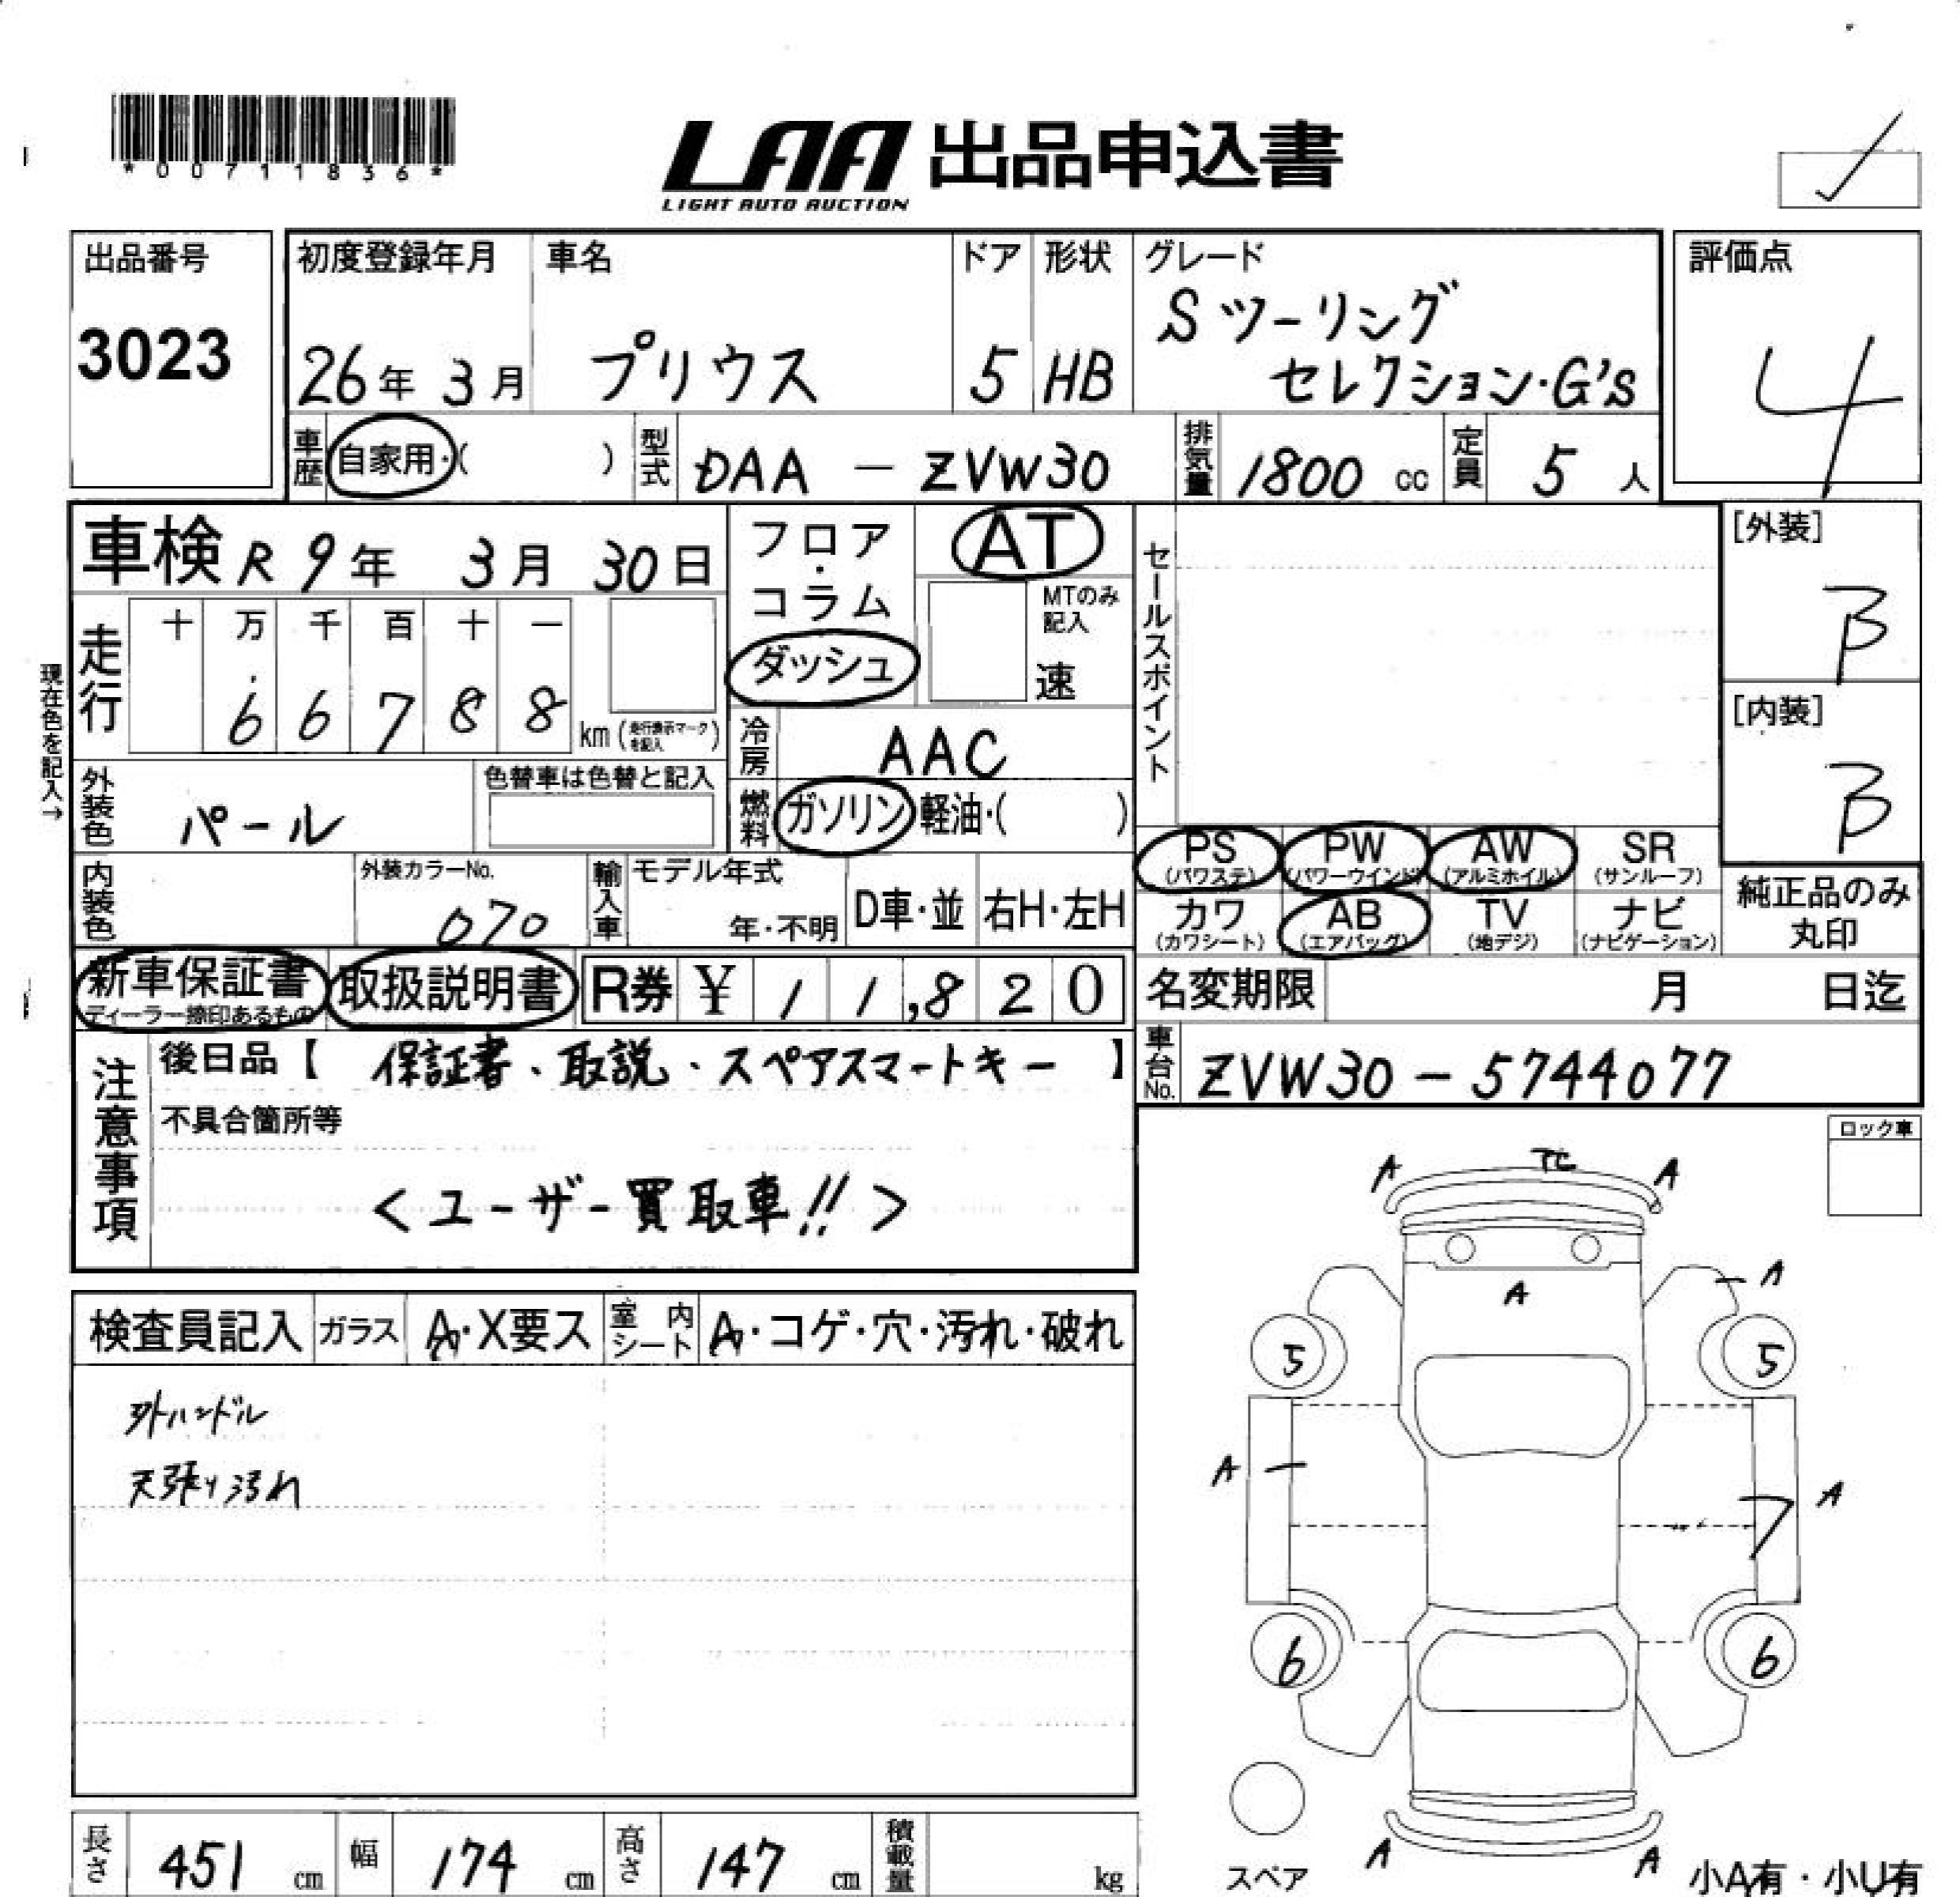 *00711836*
LAA 出品申込書
LIGHT AUTO AUCTION
出品番号
3023
初度登録年月
26年 3月
車名
プリウス
ドア
5
形状
HB
グレード
Sツーリング
セレクション・G's
評価点
4
車歴 自家用・( )
型式 DAA - ZVW30
排気量 1800 cc
定員 5 人
車検 R 9年 3月 30日
フロア・コラム
ダッシュ
AT
MTのみ記入
速
セールスポイント
[外装]
B
[内装]
B
現在色を記入→
走行
十 万 千 百 十 一
6 6 7 8 8 km (走行表示マークを記入)
冷房 AAC
燃料 ガソリン 軽油・( )
外装色 パール
色替車は色替と記入
内装色
外装カラーNo.
070
輸入車
モデル年式
年・不明
D車・並
右H・左H
PS (パワステ)
PW (パワーウインド)
AW (アルミホイル)
SR (サンルーフ)
カワ (カワシート)
AB (エアバッグ)
TV (地デジ)
ナビ (ナビゲーション)
純正品のみ
丸印
新車保証書
ディーラー捺印あるもの
取扱説明書
R券 ¥ 1 1,8 2 0
名変期限 月 日迄
車台No. ZVW30-5744077
注意事項
後日品【 保証書、取説、スペアスマートキー 】
不具合箇所等
<ユーザー買取車!!>
ロック車
検査員記入
ガラス A・X要ス
室内シート A・コゲ・穴・汚れ・破れ
外ハンドル
天張り汚れ
A A
A
A
5 5
A
A
7
6 6
A A
スペア
小A有・小U有
長さ 451 cm
幅 174 cm
高さ 147 cm
積載量 kg